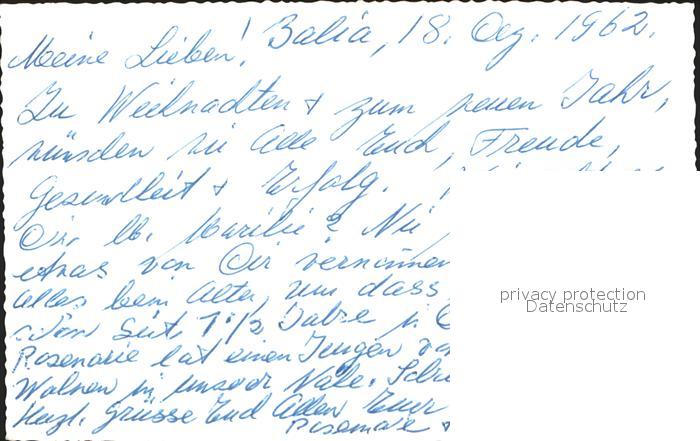 Meine Lieben! Balia, 18. Dez. 1962.
Zu Weihnachten + zum neuen Jahr,
wünschen wir Alle Euch, Freude,
Gesundheit + Erfolg.
Dir, lb. Marilie? Nie
etwas von Dir vernommen
alles beim Alten, nur dass
Seit 1 1/2 Jahre in
Rosmarie hat einen Jungen
Wohnen in unserer Nähe.
Herzl. Grüsse Euch Allen Eure
Rosmarie +
privacy protection
Datenschutz